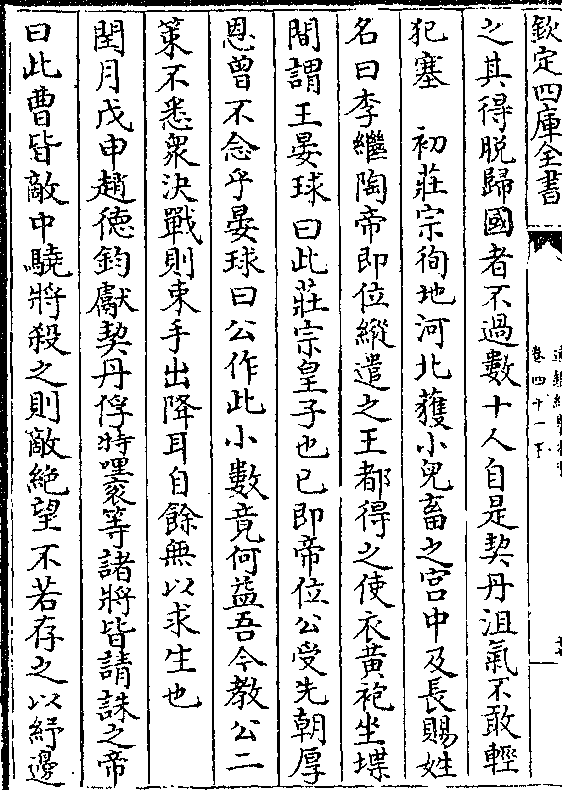 欽定四庫全書
卷四十一下
之其得脱歸國者不過數十人自是契丹沮氣不敢輕
犯塞　初莊宗徇地河北獲小兒畜之宫中及長賜姓
名曰李繼陶帝即位縱遣之王都得之使衣黄袍坐堞
間謂王晏球曰此莊宗皇子也已即帝位公受先朝厚
恩曾不念乎晏球曰公作此小數竟何益吾今教公二
策不悉衆決戰則束手出降耳自餘無以求生也
閏月戊申趙德鈞獻契丹俘特哩衮等諸將皆請誅之帝
曰此曹皆敵中驍將殺之則敵絶望不若存之以紓邊